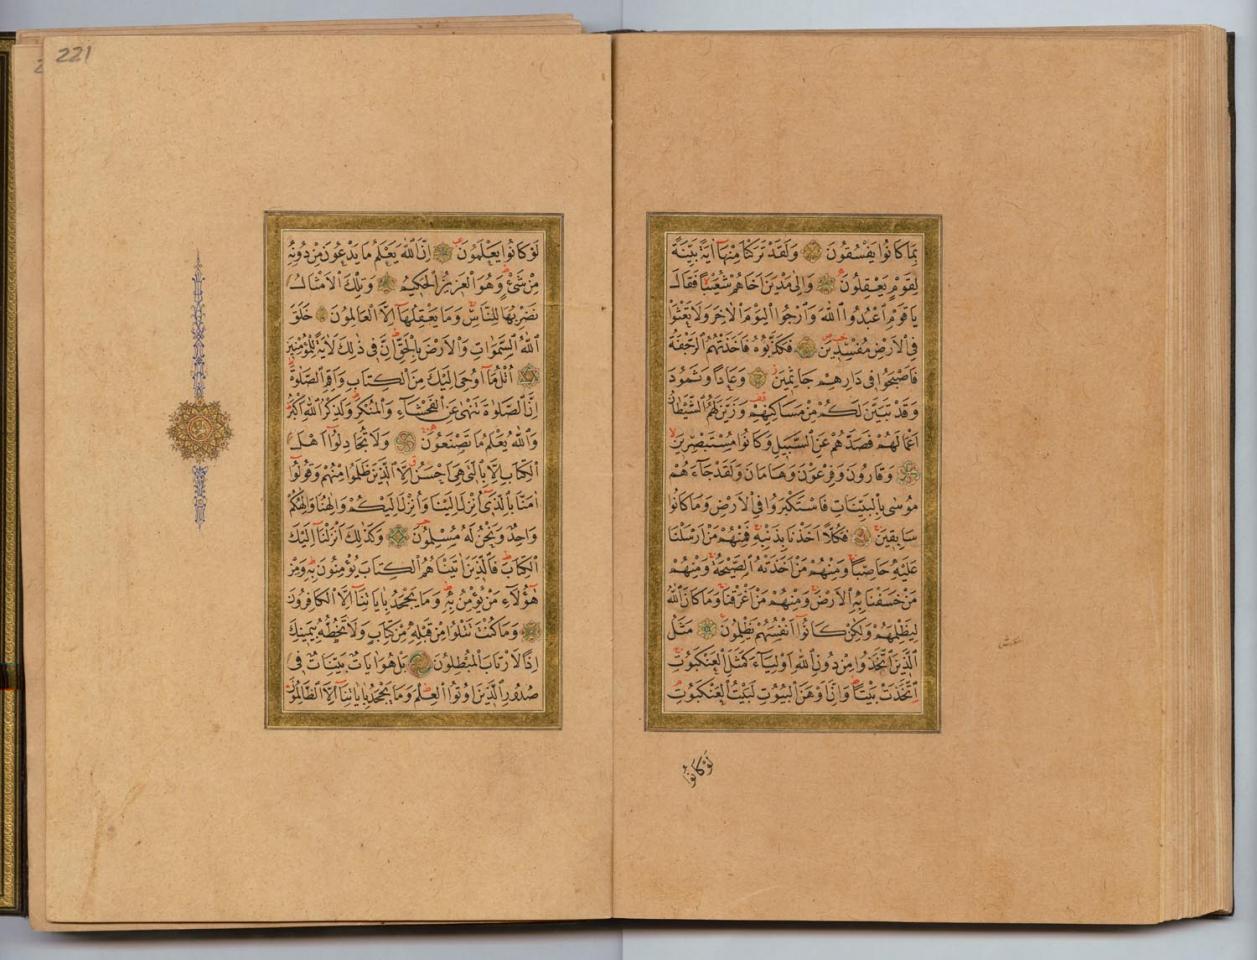 بِمَا كَانُوا يَفْسُقُونَ وَلَقَدْ تَرَكْنَا مِنْهَا اٰيَةً بَيِّنَةً
لِقَوْمٍ يَعْقِلُونَ وَاِلٰى مَدْيَنَ اَخَاهُمْ شُعَيْبًا فَقَالَ
يَا قَوْمِ اعْبُدُوا اللّٰهَ وَارْجُوا الْيَوْمَ الْاٰخِرَ وَلَا تَعْثَوْا
فِي الْاَرْضِ مُفْسِدِينَ فَكَذَّبُوهُ فَاَخَذَتْهُمُ الرَّجْفَةُ
فَاَصْبَحُوا فِي دَارِهِمْ جَاثِمِينَ وَعَادًا وَثَمُودَ
وَقَدْ تَبَيَّنَ لَكُمْ مِنْ مَسَاكِنِهِمْ وَزَيَّنَ لَهُمُ الشَّيْطَانُ
اَعْمَالَهُمْ فَصَدَّهُمْ عَنِ السَّبِيلِ وَكَانُوا مُسْتَبْصِرِينَ
وَقَارُونَ وَفِرْعَوْنَ وَهَامَانَ وَلَقَدْ جَاءَهُمْ
مُوسٰى بِالْبَيِّنَاتِ فَاسْتَكْبَرُوا فِي الْاَرْضِ وَمَا كَانُوا
سَابِقِينَ فَكُلًّا اَخَذْنَا بِذَنْبِهِ فَمِنْهُمْ مَنْ اَرْسَلْنَا
عَلَيْهِ حَاصِبًا وَمِنْهُمْ مَنْ اَخَذَتْهُ الصَّيْحَةُ وَمِنْهُمْ
مَنْ خَسَفْنَا بِهِ الْاَرْضَ وَمِنْهُمْ مَنْ اَغْرَقْنَا وَمَا كَانَ اللّٰهُ
لِيَظْلِمَهُمْ وَلٰكِنْ كَانُوا اَنْفُسَهُمْ يَظْلِمُونَ مَثَلُ
الَّذِينَ اتَّخَذُوا مِنْ دُونِ اللّٰهِ اَوْلِيَاءَ كَمَثَلِ الْعَنْكَبُوتِ
اِتَّخَذَتْ بَيْتًا وَاِنَّ اَوْهَنَ الْبُيُوتِ لَبَيْتُ الْعَنْكَبُوتِ
لَوْ كَانُوا
221
لَوْ كَانُوا يَعْلَمُونَ اِنَّ اللّٰهَ يَعْلَمُ مَا يَدْعُونَ مِنْ دُونِهِ
مِنْ شَيْءٍ وَهُوَ الْعَزِيزُ الْحَكِيمُ وَتِلْكَ الْاَمْثَالُ
نَضْرِبُهَا لِلنَّاسِ وَمَا يَعْقِلُهَا اِلَّا الْعَالِمُونَ خَلَقَ
اللّٰهُ السَّمٰوَاتِ وَالْاَرْضَ بِالْحَقِّ اِنَّ فِي ذٰلِكَ لَاٰيَةً لِلْمُؤْمِنِينَ
اُتْلُ مَا اُوحِيَ اِلَيْكَ مِنَ الْكِتَابِ وَاَقِمِ الصَّلٰوةَ
اِنَّ الصَّلٰوةَ تَنْهٰى عَنِ الْفَحْشَاءِ وَالْمُنْكَرِ وَلَذِكْرُ اللّٰهِ اَكْبَرُ
وَاللّٰهُ يَعْلَمُ مَا تَصْنَعُونَ وَلَا تُجَادِلُوا اَهْلَ
الْكِتَابِ اِلَّا بِالَّتِي هِيَ اَحْسَنُ اِلَّا الَّذِينَ ظَلَمُوا مِنْهُمْ وَقُولُوا
اٰمَنَّا بِالَّذِي اُنْزِلَ اِلَيْنَا وَاُنْزِلَ اِلَيْكُمْ وَاِلٰهُنَا وَاِلٰهُكُمْ
وَاحِدٌ وَنَحْنُ لَهُ مُسْلِمُونَ وَكَذٰلِكَ اَنْزَلْنَا اِلَيْكَ
الْكِتَابَ فَالَّذِينَ اٰتَيْنَاهُمُ الْكِتَابَ يُؤْمِنُونَ بِهِ وَمِنْ
هٰؤُلَاءِ مَنْ يُؤْمِنُ بِهِ وَمَا يَجْحَدُ بِاٰيَاتِنَا اِلَّا الْكَافِرُونَ
وَمَا كُنْتَ تَتْلُوا مِنْ قَبْلِهِ مِنْ كِتَابٍ وَلَا تَخُطُّهُ بِيَمِينِكَ
اِذًا لَارْتَابَ الْمُبْطِلُونَ بَلْ هُوَ اٰيَاتٌ بَيِّنَاتٌ فِي
صُدُورِ الَّذِينَ اُوتُوا الْعِلْمَ وَمَا يَجْحَدُ بِاٰيَاتِنَا اِلَّا الظَّالِمُونَ